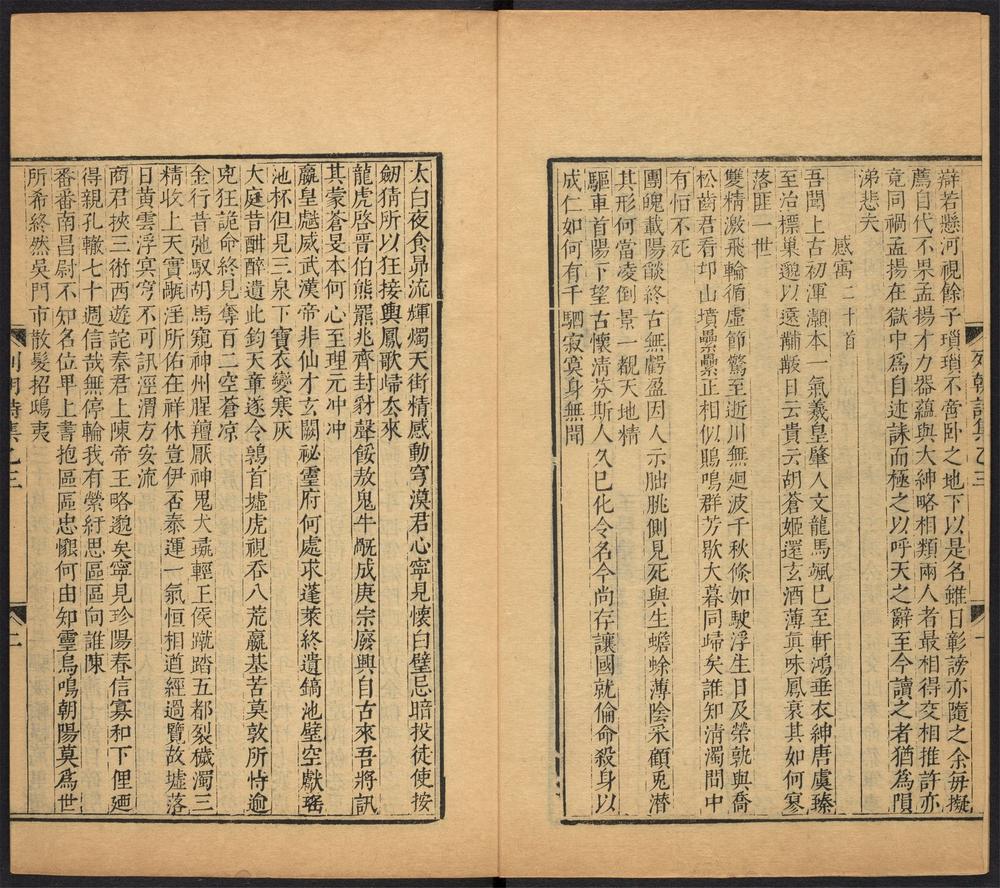 辯若懸河視餘子瑣瑣不啻臥之地下以是名雖日彰謗亦隨之余毋擬
薦自代不果孟揚才力器蘊與大紳略相類兩人者最相得交相推許亦
竟同禍孟揚在獄中為自述誄而極之以呼天之辭至今讀之者猶為隕
涕悲夫
感寓二十首
吾聞上古初渾灝本一氣羲皇肇人文龍馬颯已至軒鴻垂衣紳唐虞臻
至治標巢邈以遠黼黻日云貴云胡蒼姬還玄酒薄真味鳳衰其如何寥
落匪一世
雙精激飛輪循虛節驚至逝川無廻波千秋倐如駛浮生日及榮孰與喬
松齒君看邙山墳纍纍正相似鵙鳴群芳歇大暮同歸矣誰知清濁間中
有恒不死
團魄載陽燄終古無虧盈因人示朏朓側見死與生蟾蜍薄陰采顧兎潛
其形何當凌倒景一覩天地精
驅車首陽下望古懷清芬斯人久已化令名今尚存讓國就倫命殺身以
成仁如何有千駟寂寞身無聞
列朝詩集乙三
一
太白夜食昴流輝燭天街精感動穹漠君心寧見懷白璧忌暗投徒使按
劒猜所以狂接輿鳳歌歸去來
龍虎啓晋伯熊羆兆齊封豺聲餒敖鬼牛旤成庚宗廢興自古來吾將訊
其蒙蒼旻本何心至理元冲冲
嬴皇颷威武漢帝非仙才玄闕祕靈府何處求蓬萊終遺鎬池璧空獻瑤
池杯但見三泉下寶衣變寒灰
大庭昔酣醉遺此鈞天童遂令鶉首墟虎視吞八荒嬴基苦莫敦所恃逾
兇狂詭命終見奪百二空蒼凉
金行昔弛馭胡馬窺神州腥羶厭神鬼犬彘輕王侯蹴踏五都裂穢濁三
精收上天實毓淫所佑在祥休豈伊否泰運一氣恒相道經過覽故墟落
日黃雲浮冥穹不可訊涇渭方安流
商君挾三術西遊詫秦君上陳帝王略邈矣寧見珍陽春信寡和下俚廼
得親孔轍七十週信哉無停輪我有縈紆思區區向誰陳
番番南昌尉不知名位甲上書抱區區忠懇何由知靈烏鳴朝陽莫為世
所希終然吳門市散髮招鴟夷
列朝詩集乙三
二